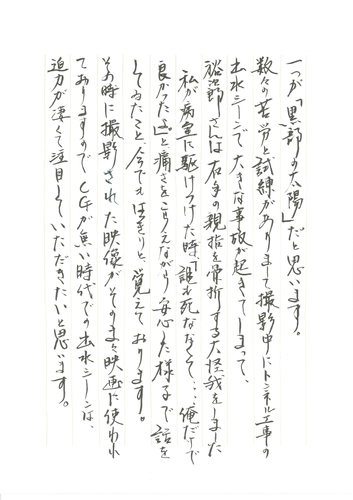 一つが「黒部の太陽」だと思います。
数々の苦労と試練がありまして撮影中にトンネル工事の
出水シーンで大きな事故が起きてしまって、
裕次郎さんは右手の親指を骨折する大怪我をしました
私が病室に駆けつけた時「誰も死ななくて‥俺だけで
良かったよ」と痛さをこらえながら安心した様子で話を
してゐたこと、今でもはっきりと覚えております。
その時に撮影された映像がそのまま映画に使われ
ておりますのでCGが無い時代での出水シーンは、
迫力が凄くて注目していただきたいと思います。